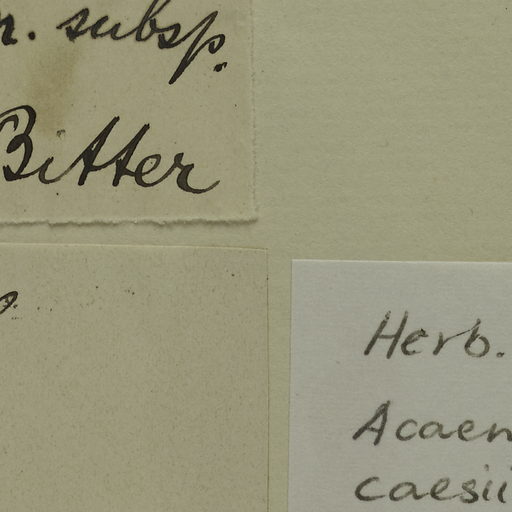 n. subsp.
Bitter
Herb.
Acaen
caesii